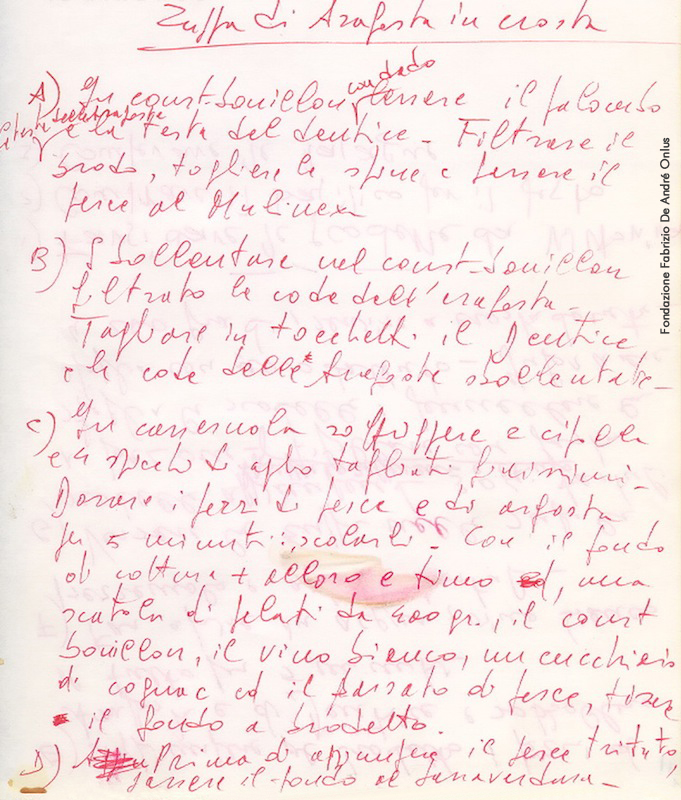 Zuppa di Aragosta in crosta
A) In court-bouillon con dado lessare il palombo
la testa dell'aragosta
e la testa del dentice - Filtrare il
brodo, togliere le spine e passare il
pesce al Mulinex
B) Sbollentare nel court-bouillon
filtrato la coda dell'aragosta -
Tagliare in tocchetti il Dentice
e la coda delle Aragoste sbollentate -
C) In casseruola soffriggere 2 cipolle
e 4 spicchi di aglio tagliati finissimi -
Dorare i pezzi di pesce e di aragosta
per 5 minuti: scolarli - Con il fondo
di cottura + alloro e timo ed, una
scatola di pelati da 400 gr., il court
bouillon, il vino bianco, un cucchiaio
di cognac ed il passato di pesce, tirare
il fondo a brodetto.
D) Prima di aggiungere il pesce tritato,
passare il fondo al passaverdura -
Fondazione Fabrizio De André Onlus